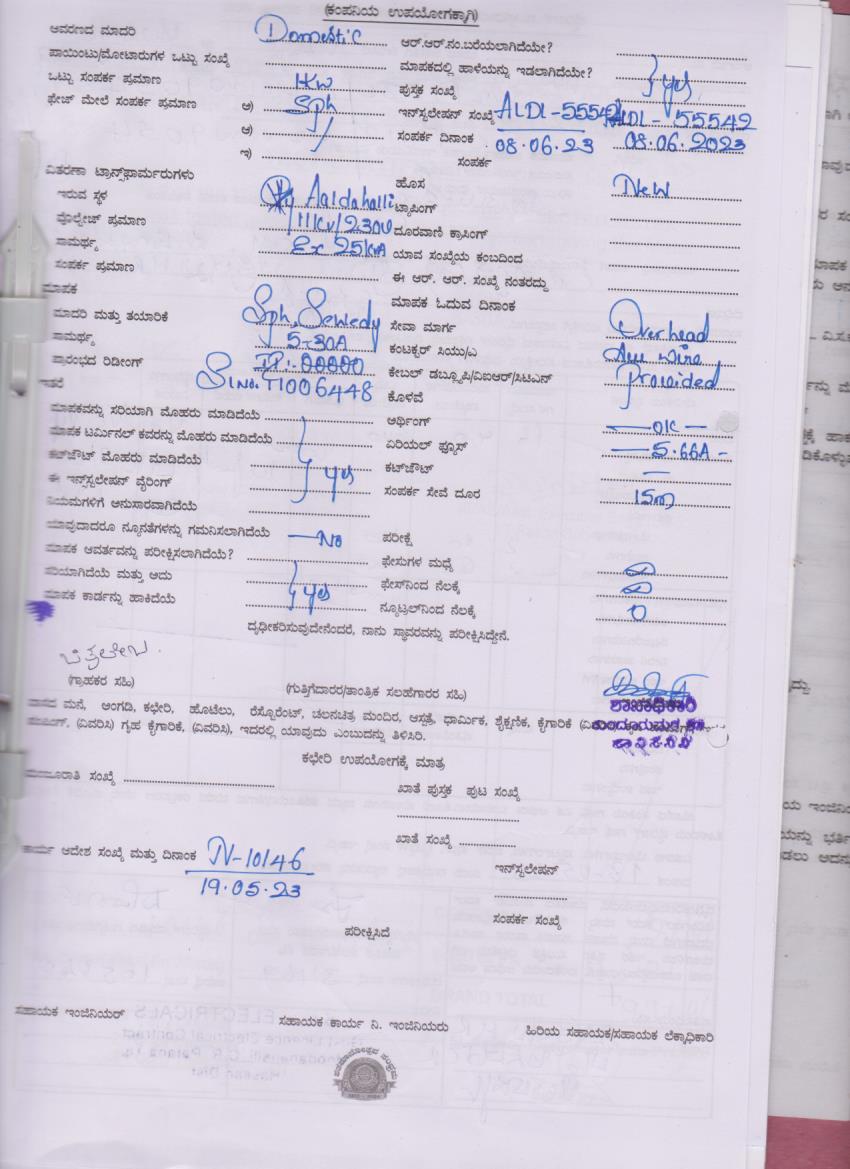 (ಕಂಪನಿಯ ಉಪಯೋಗಕ್ಕಾಗಿ)
ಆವರಣದ ಮಾದರಿ Domestic ಆರ್.ಆರ್.ನಂ.ಬರೆಯಲಾಗಿದೆಯೇ?
ಪಾಯಿಂಟು/ಮೋಟಾರುಗಳ ಒಟ್ಟು ಸಂಖ್ಯೆ ಮಾಪಕದಲ್ಲಿ ಹಾಳೆಯನ್ನು ಇಡಲಾಗಿದೆಯೇ? yes
ಒಟ್ಟು ಸಂಪರ್ಕ ಪ್ರಮಾಣ 1KW ಪುಸ್ತಕ ಸಂಖ್ಯೆ
ಫೇಜ್ ಮೇಲೆ ಸಂಪರ್ಕ ಪ್ರಮಾಣ ಅ) Sph ಇನ್‌ಸ್ಟಲೇಷನ್ ಸಂಖ್ಯೆ ALDL-55542 ALDL-55542
ಆ) ಸಂಪರ್ಕ ದಿನಾಂಕ 08.06.23 08.06.2023
ಇ) ಸಂಪರ್ಕ
ವಿತರಣಾ ಟ್ರಾನ್ಸ್‌ಫಾರ್ಮರುಗಳು ಹೊಸ New
ಇರುವ ಸ್ಥಳ Aaldahalli ಟ್ಯಾಪಿಂಗ್
ವೊಲ್ಟೇಜ್ ಪ್ರಮಾಣ 11KV/230V ದೂರವಾಣಿ ಕ್ರಾಸಿಂಗ್
ಸಾಮರ್ಥ್ಯ Ex 25KVA ಯಾವ ಸಂಖ್ಯೆಯ ಕಂಬದಿಂದ
ಸಂಪರ್ಕ ಪ್ರಮಾಣ ಈ ಆರ್. ಆರ್. ಸಂಖ್ಯೆ ನಂತರದ್ದು
ಮಾಪಕ ಮಾಪಕ ಓದುವ ದಿನಾಂಕ
ಮಾದರಿ ಮತ್ತು ತಯಾರಿಕೆ Sph, Sewedy ಸೇವಾ ಮಾರ್ಗ Overhead
ಸಾಮರ್ಥ್ಯ 5-30A ಕಂಟಕ್ಟರ್ ಸಿಯು/ಎ wire
ಪ್ರಾರಂಭದ ರಿಡೀಂಗ್ IR:-00000 ಕೇಬಲ್ ಡಬ್ಲ್ಯೂಪಿ/ವಿಐಆರ್/ಸಿಟಿಎಸ್ Provided
ಇತರೆ Sl No: T1006448 ಕೊಳವೆ
ಮಾಪಕವನ್ನು ಸರಿಯಾಗಿ ಮೊಹರು ಮಾಡಿದೆಯೆ ಅರ್ಥಿಂಗ್ — OK —
ಮಾಪಕ ಟರ್ಮಿನಲ್ ಕವರನ್ನು ಮೊಹರು ಮಾಡಿದೆಯೆ ಏರಿಯಲ್ ಫ್ಯೂಸ್ — 5.66A -
ಕಟ್‌ಔಟ್ ಮೊಹರು ಮಾಡಿದೆಯೆ yes ಕಟ್‌ಔಟ್ —
ಈ ಇನ್‌ಸ್ಟಲೇಷನ್ ವೈರಿಂಗ್ ಸಂಪರ್ಕ ಸೇವೆ ದೂರ 15m
ನಿಯಮಗಳಿಗೆ ಅನುಸಾರವಾಗಿದೆಯೆ
ಯಾವುದಾದರೂ ನ್ಯೂನತೆಗಳನ್ನು ಗಮನಿಸಲಾಗಿದೆಯೆ — No ಪರೀಕ್ಷೆ
ಮಾಪಕ ಆವರ್ತವನ್ನು ಪರೀಕ್ಷಿಸಲಾಗಿದೆಯೆ? ಫೇಸುಗಳ ಮಧ್ಯೆ
ಸರಿಯಾಗಿದೆಯೆ ಮತ್ತು ಅದು yes ಫೇಸ್‌ನಿಂದ ನೆಲಕ್ಕೆ
ಮಾಪಕ ಕಾರ್ಡನ್ನು ಹಾಕಿದೆಯೆ ನ್ಯೂಟ್ರಲ್‌ನಿಂದ ನೆಲಕ್ಕೆ 0
ದೃಢೀಕರಿಸುವುದೇನೆಂದರೆ, ನಾನು ಸ್ಥಾವರವನ್ನು ಪರೀಕ್ಷಿಸಿದ್ದೇನೆ.
ಚಿತ್ರಲೇಖ
(ಗ್ರಾಹಕರ ಸಹಿ) (ಗುತ್ತಿಗೆದಾರರ/ತಾಂತ್ರಿಕ ಸಲಹೆಗಾರರ ಸಹಿ)
ಶಾಖಾಧಿಕಾರಿ
ವಾಸದ ಮನೆ, ಅಂಗಡಿ, ಕಛೇರಿ, ಹೊಟೆಲು, ರೆಸ್ಟೊರೆಂಟ್, ಚಲನಚಿತ್ರ ಮಂದಿರ, ಆಸ್ಪತ್ರೆ, ಧಾರ್ಮಿಕ, ಶೈಕ್ಷಣಿಕ, ಕೈಗಾರಿಕೆ
(ವಿವರಿಸಿ) ಗೃಹ ಕೈಗಾರಿಕೆ, (ವಿವರಿಸಿ), ಇದರಲ್ಲಿ ಯಾವುದು ಎಂಬುದನ್ನು ತಿಳಿಸಿರಿ.
ಕಛೇರಿ ಉಪಯೋಗಕ್ಕೆ ಮಾತ್ರ
ಮಂಜೂರಾತಿ ಸಂಖ್ಯೆ ಖಾತೆ ಪುಸ್ತಕ ಪುಟ ಸಂಖ್ಯೆ
ಖಾತೆ ಸಂಖ್ಯೆ
ಕಾರ್ಯ ಆದೇಶ ಸಂಖ್ಯೆ ಮತ್ತು ದಿನಾಂಕ N-10146 ಇನ್‌ಸ್ಟಲೇಷನ್
19.05.23
ಸಂಪರ್ಕ ಸಂಖ್ಯೆ
ಪರೀಕ್ಷಿಸಿದೆ
ಸಹಾಯಕ ಇಂಜಿನಿಯರ್ ಸಹಾಯಕ ಕಾರ್ಯ ನಿ. ಇಂಜಿನಿಯರು ಹಿರಿಯ ಸಹಾಯಕ/ಸಹಾಯಕ ಲೆಕ್ಕಾಧಿಕಾರಿ